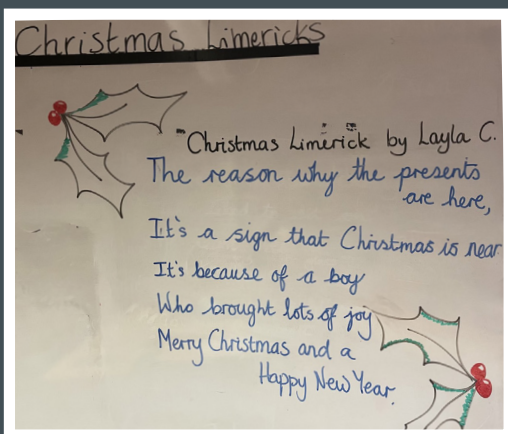 Christmas Limericks
Christmas Limerick by Layla C.
The reason why the presents
are here,
It's a sign that Christmas is near
It's because of a boy
Who brought lots of joy
Merry Christmas and a
Happy New Year.